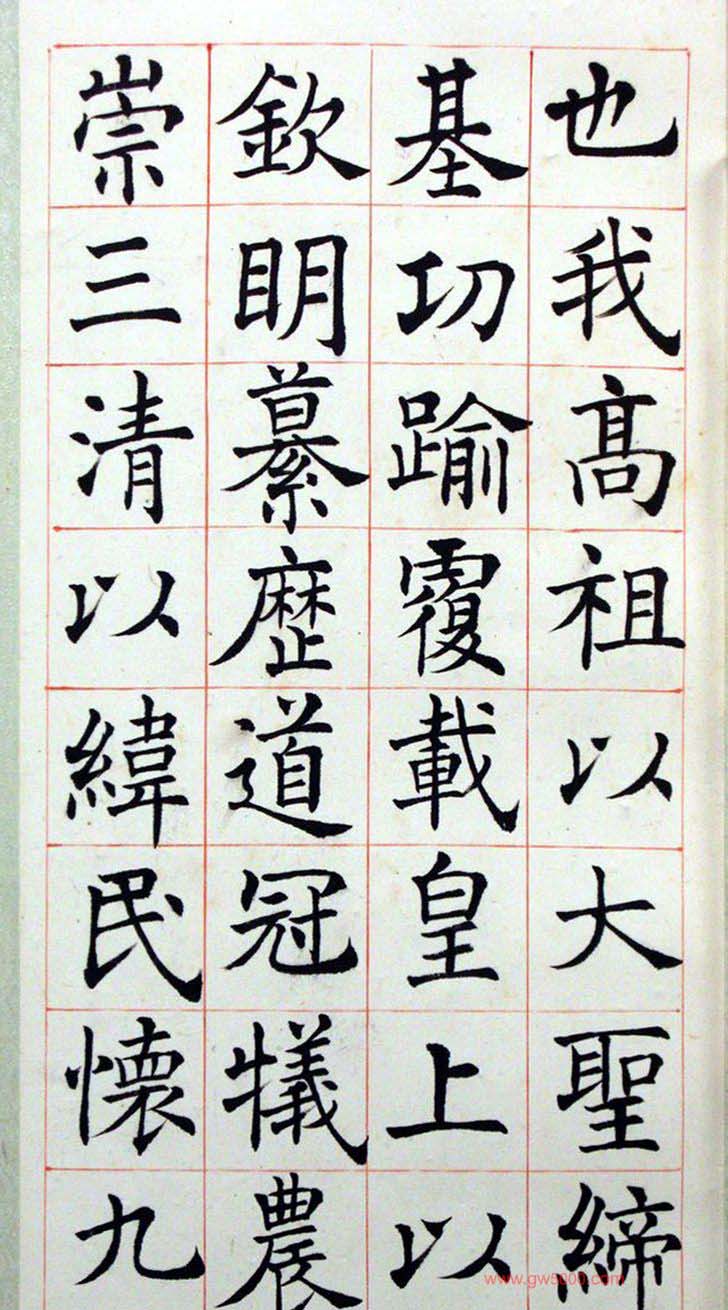 也我高祖以大聖締
基功踰覆載皇上以
欽明纂歷道冠犧農
崇三清以緯民懷九
www.gw5000.com